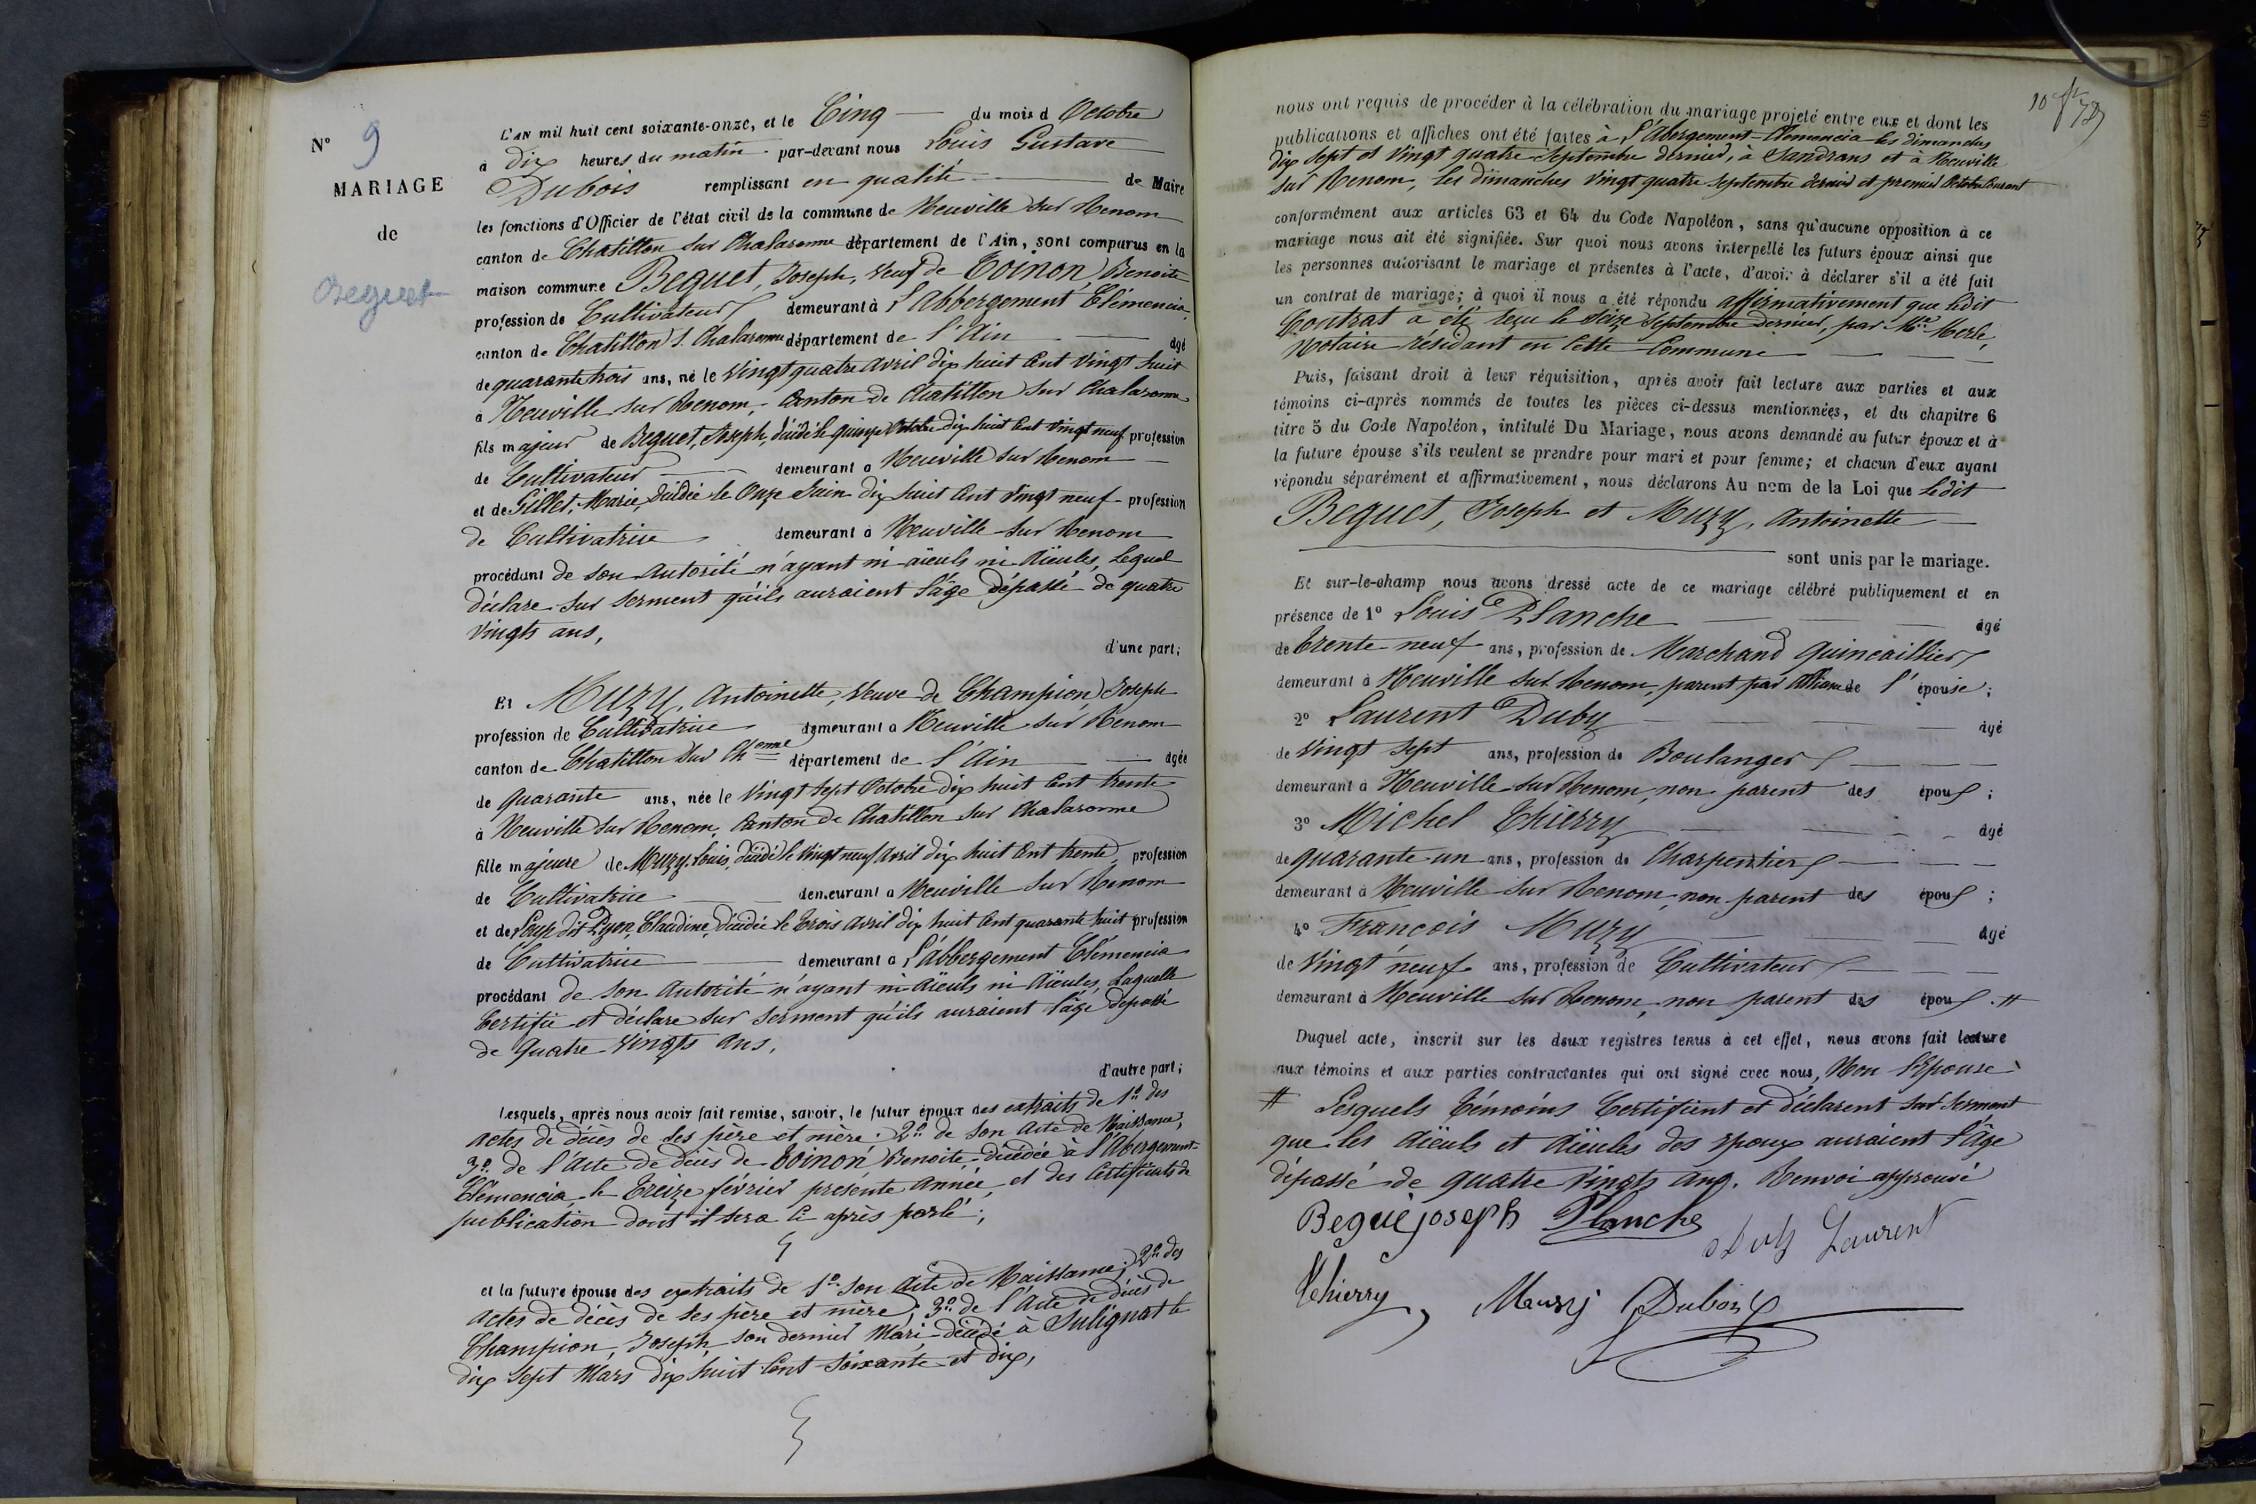 N° 9
MARIAGE
de
Beguet
L'AN mil huit cent soixante-onze, et le Cinq du mois d Octobre
à Dix heures du matin par-devant nous Louis Gustave
Dubois remplissant en qualité de Maire
les fonctions d'Officier de l'état civil de la commune de Neuville sur Renom
canton de Chatillon sur Chalaronne département de l'Ain, sont comparus en la
maison commune Beguet, Joseph, veuf de Toinon Benoite
profession de Cultivateur demeurant à l'Abbergement Clémencia
canton de Chatillon s. Chalaronne département de l'Ain âgé
de quarante trois ans, né le Vingt quatre avril dix huit cent vingt huit
à Neuville sur Renom, Canton de Chatillon sur Chalaronne
fils majeur de Beguet, Joseph, décédé le quinze Octobre dix huit cent vingt neuf profession
de Cultivateur demeurant à Neuville sur Renom
et de Gillet, Marie, décédée le Onze Juin dix huit cent vingt neuf profession
de Cultivatrice demeurant à Neuville sur Renom
procédant de son autorité n'ayant ni aïeuls ni aïeules, Lequel
déclare sur serment qu'ils auraient l'âge dépassé de quatre
vingts ans,
d'une part;
Et Muzy, Antoinette, veuve de Champion Joseph
profession de Cultivatrice demeurant à Neuville sur Renom
canton de Chatillon sur Ch.onne département de l'Ain âgée
de quarante ans, née le Vingt sept Octobre dix huit cent trente
à Neuville sur Renom, Canton de Chatillon sur Chalaronne
fille majeure de Muzy, Louis, décédé le vingt neuf avril dix huit cent trente profession
de Cultivatrice demeurant à Neuville sur Renom
et de Loup dit Lyon, Claudine, décédée le trois avril dix huit cent quarante huit profession
de Cultivatrice demeurant à l'Abbergement Clémencia
procédant de son autorité n'ayant ni aïeuls ni aïeules, Laquelle
Certifie et déclare sur serment qu'ils auraient l'âge depassé
de quatre vingts ans,
d'autre part;
Lesquels, après nous avoir fait remise, savoir, le futur époux des extraits de 1° des
actes de décès de ses père et mère; 2° de son acte de Naissance,
3° de l'acte de décès de Toinon Benoite, décédée à l'Abergement
Clémencia le Treize février présente année, et des Certificats de
publication dont il sera ci après parlé;
et la future épouse des extraits de 1° son acte de Naissance; 2° des
actes de décès de ses père et mère; 3° de l'acte de décès de
Champion, Joseph, son dernier Mari décédé à Sulignat le
dix sept Mars dix huit cent soixante et dix,
nous ont requis de procéder à la célébration du mariage projeté entre eux et dont les
publications et affiches ont été faites à l'Abergement-Clemencia les dimanches
dix sept et vingt quatre Septembre dernier, à Sandrans et à Neuville
sur Renom, les dimanches vingt quatre Septembre dernier et premier Octobre Courant
conformément aux articles 63 et 64 du Code Napoléon, sans qu'aucune opposition à ce
mariage nous ait été signifiée. Sur quoi nous avons interpellé les futurs époux ainsi que
les personnes autorisant le mariage et présentes à l'acte, d'avoir à déclarer s'il a été fait
un contrat de mariage; à quoi il nous a été répondu affirmativement que ledit
Contrat a été reçu le seize Septembre dernier, par Me Merle,
Notaire résidant en cette Commune
Puis, faisant droit à leur réquisition, après avoir fait lecture aux parties et aux
témoins ci-après nommés de toutes les pièces ci-dessus mentionnées, et du chapitre 6
titre 5 du Code Napoléon, intitulé Du Mariage, nous avons demandé au futur époux et à
la future épouse s'ils veulent se prendre pour mari et pour femme; et chacun d'eux ayant
répondu séparément et affirmativement, nous déclarons Au nom de la Loi que ledit
Beguet, Joseph et Muzy, Antoinette
sont unis par le mariage.
Et sur-le-champ nous avons dressé acte de ce mariage célébré publiquement et en
présence de 1° Louis Planche âgé
de trente neuf ans, profession de Marchand Quincaillier
demeurant à Neuville sur Renom, parent par alliance de l'épouse;
2° Laurent Duby âgé
de vingt sept ans, profession de Boulanger
demeurant à Neuville sur Renom, non parent des époux;
3° Michel Thierry âgé
de quarante un ans, profession de Charpentier
demeurant à Neuville sur Renom, non parent des époux;
4° François Muzy âgé
de vingt neuf ans, profession de Cultivateur
demeurant à Neuville sur Renom, non parent des époux. #
Duquel acte, inscrit sur les deux registres tenus à cet effet, nous avons fait lecture
aux témoins et aux parties contractantes qui ont signé avec nous, Non l'Epouse
# Lesquels témoins Certifient et déclarent sur serment
que les aïeuls et aïeules des époux auraient l'âge
dépassé de quatre vingts ans. Renvoi approuvé
Begue joseph Planche Duby Laurent
Thierry Muzy Dubois